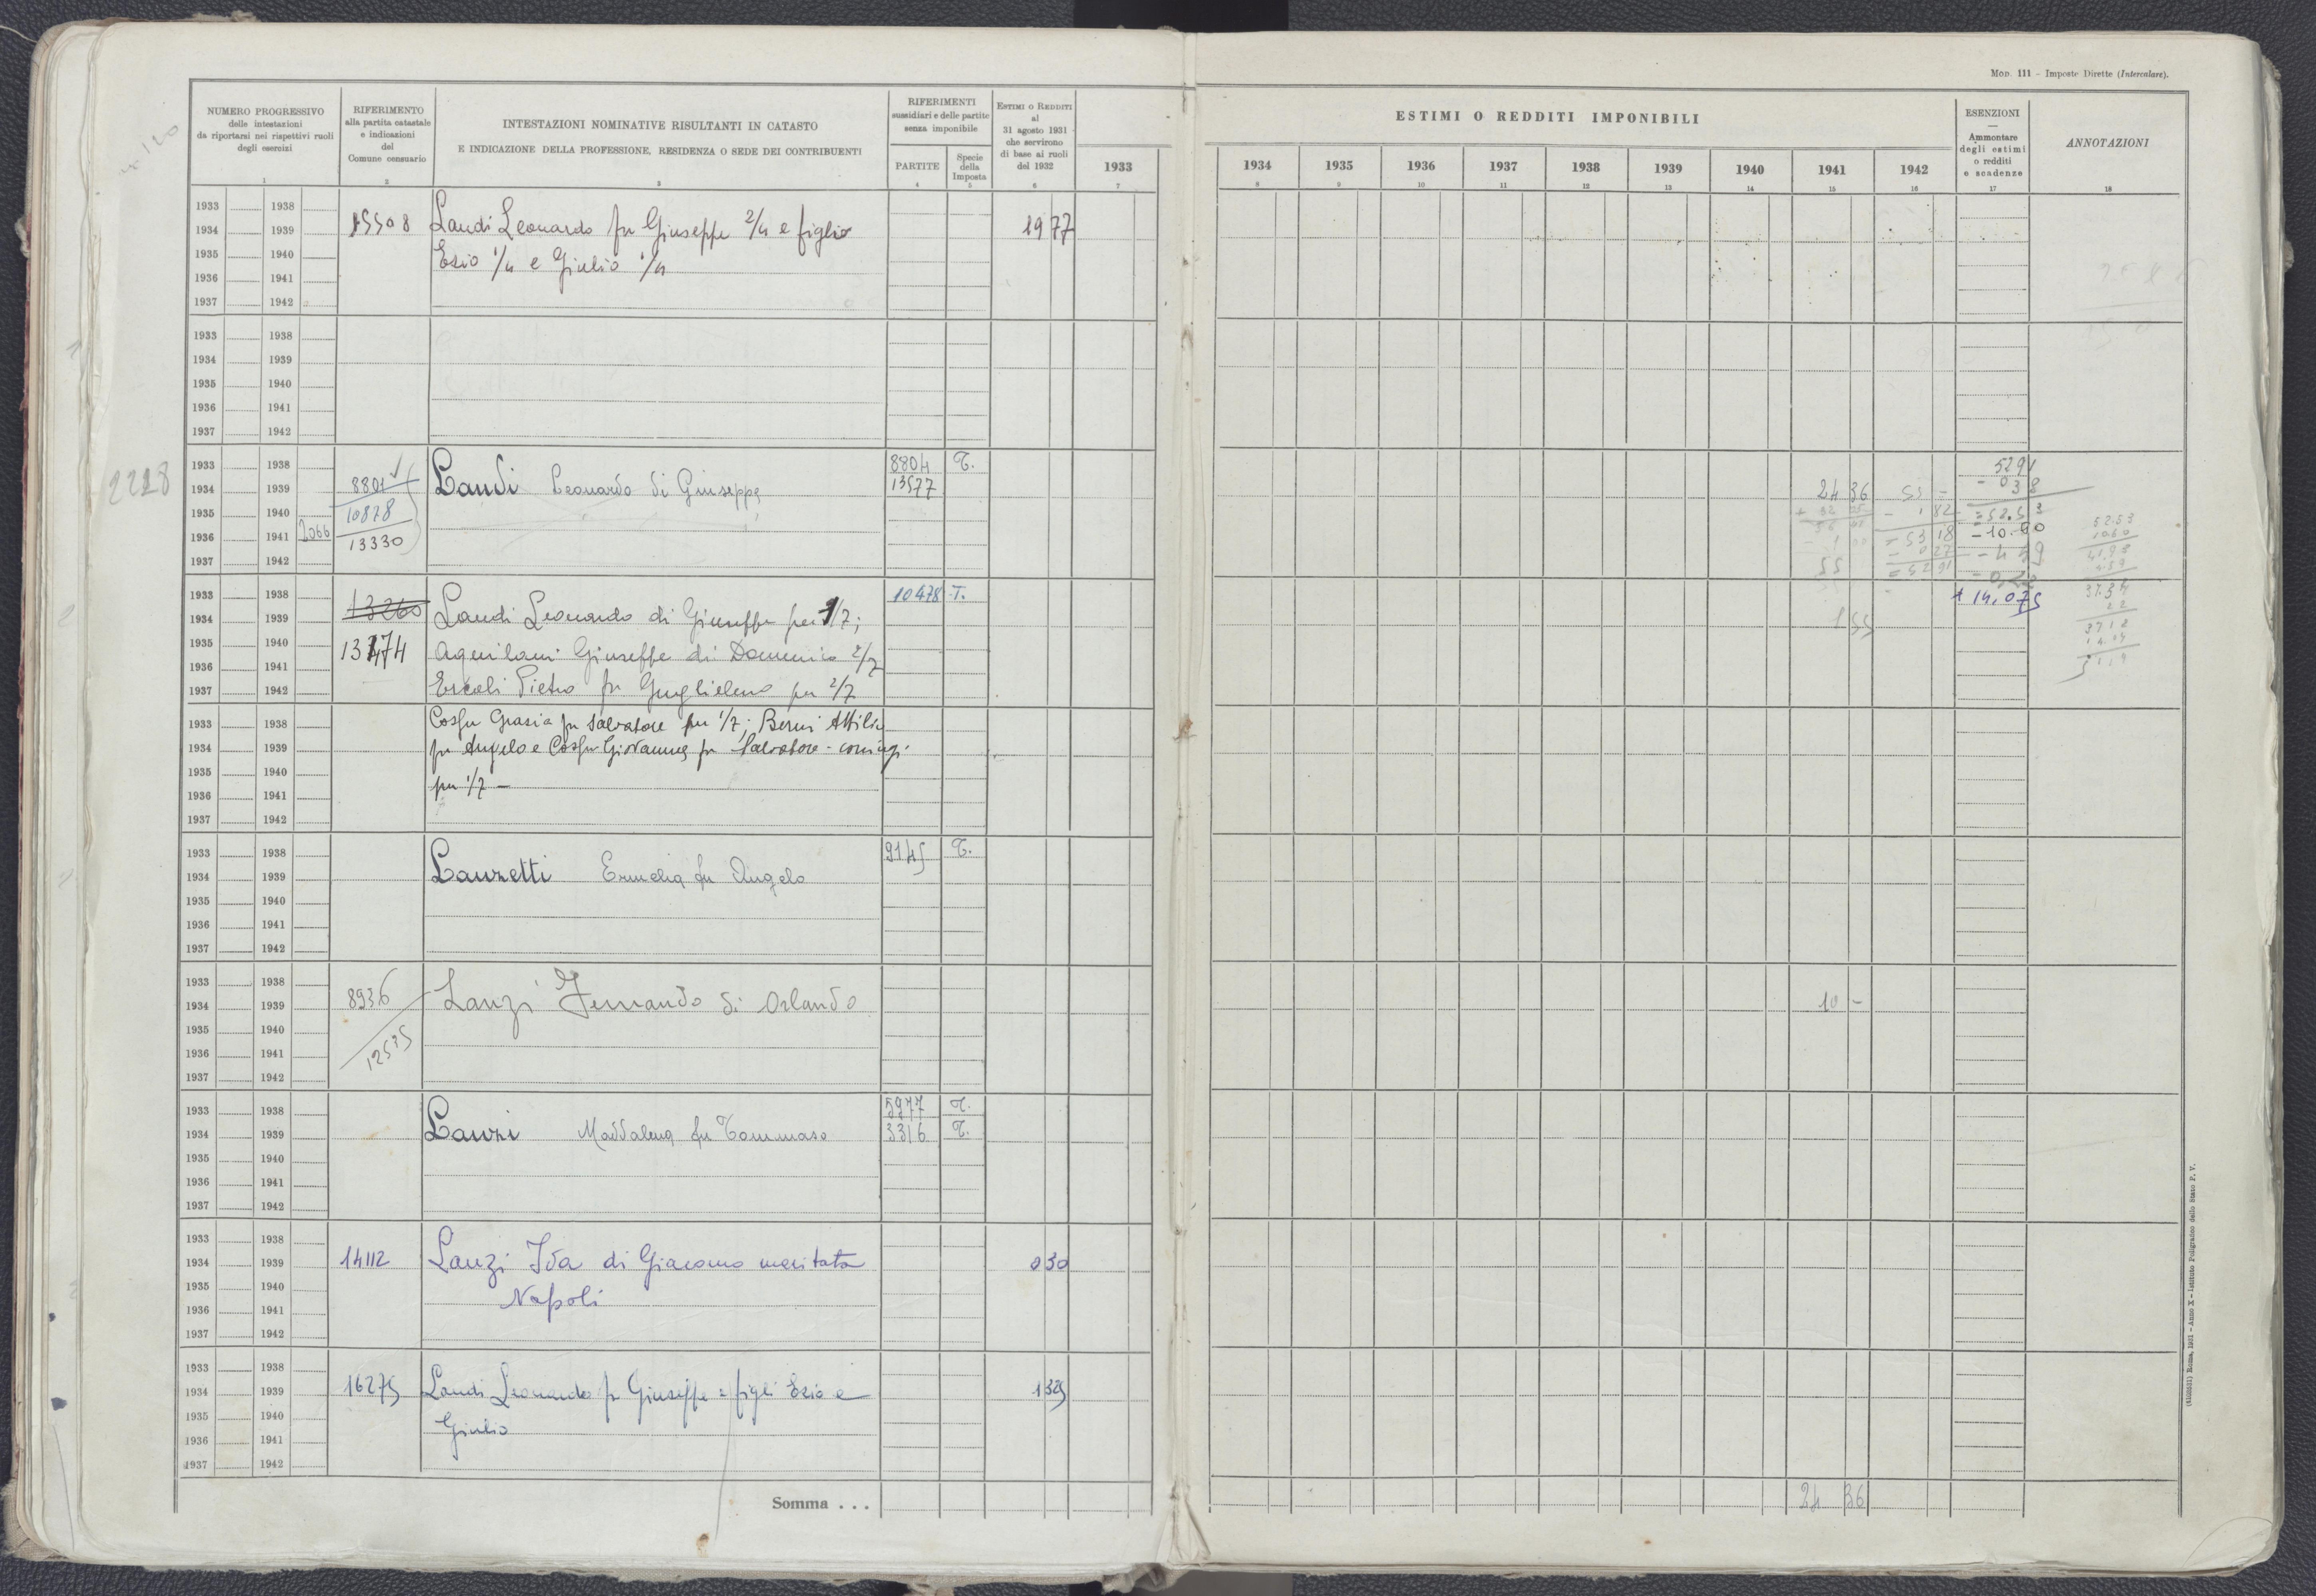 MOD. 111 - Imposte Dirette (Intercalare).
NUMERO PROGRESSIVO
delle intestazioni
da riportarsi nei rispettivi ruoli
degli esercizi
1
RIFERIMENTO
alla partita catastale
e indicazioni
del
Comune censuario
2
INTESTAZIONI NOMINATIVE RISULTANTI IN CATASTO
E INDICAZIONE DELLA PROFESSIONE, RESIDENZA O SEDE DEI CONTRIBUENTI
3
RIFERIMENTI
sussidiari e delle partite
senza imponibile
PARTITE
4
Specie
della
Imposta
5
ESTIMI O REDDITI
al
31 agosto 1931
che servirono
di base ai ruoli
del 1932
6
1933
7
ESTIMI O REDDITI IMPONIBILI
1934 1935 1936 1937 1938 1939 1940 1941 1942
8 9 10 11 12 13 14 15 16
ESENZIONI
Ammontare
degli estimi
o redditi
e scadenze
17
ANNOTAZIONI
18
1933 1938
1934 1939 15508 Landi Leonardo fu Giuseppe 2/4 e figlio 19 77
1935 1940 Ezio 1/4 e Giulio 1/4
1936 1941
1937 1942
1933 1938
1934 1939
1935 1940
1936 1941
1937 1942
1933 1938 8804 T. 5291
2228 1934 1939 8801 Landi Leonardo di Giuseppe 13577 24 36 - 038
1935 1940 10878 = 52.53
1936 1941 2066 13330 53 18 - 10.60
1937 1942 = 52 91 - 4 59
1933 1938 13260 10478 T. + 14.075
1934 1939 Landi Leonardo di Giuseppe per 1/7;
1935 1940 13474 Aquilani Giuseppe di Domenico 2/7
1936 1941
1937 1942 Ercoli Pietro fu Guglielmo per 2/7
1933 1938 Grazia fu Salvatore per 1/7; Berni Attilio
1934 1939 fu Angelo e Giovanna fu Salvatore - coniugi
1935 1940
1936 1941 per 1/7 -
1937 1942
1933 1938 9145 T.
1934 1939 Lanzetti Ermelia fu Angelo
1935 1940
1936 1941
1937 1942
1933 1938
1934 1939 8936 Lanzi Fernando di Orlando 10 -
1935 1940
1936 1941 12575
1937 1942
1933 1938 5977 T.
1934 1939 Lanzi Maddalena fu Tommaso 3316 T.
1935 1940
1936 1941
1937 1942
1933 1938
1934 1939 14112 Lanzi Ida di Giacomo maritata 0 30
1935 1940
1936 1941 Napoli
1937 1942
1933 1938
1934 1939 16275 Landi Leonardo fu Giuseppe e figli Ezio e 1 325
1935 1940 Giulio
1936 1941
1937 1942
Somma . . . 24 36
Roma, 1931 - Anno X - Istituto Poligrafico dello Stato P. V.